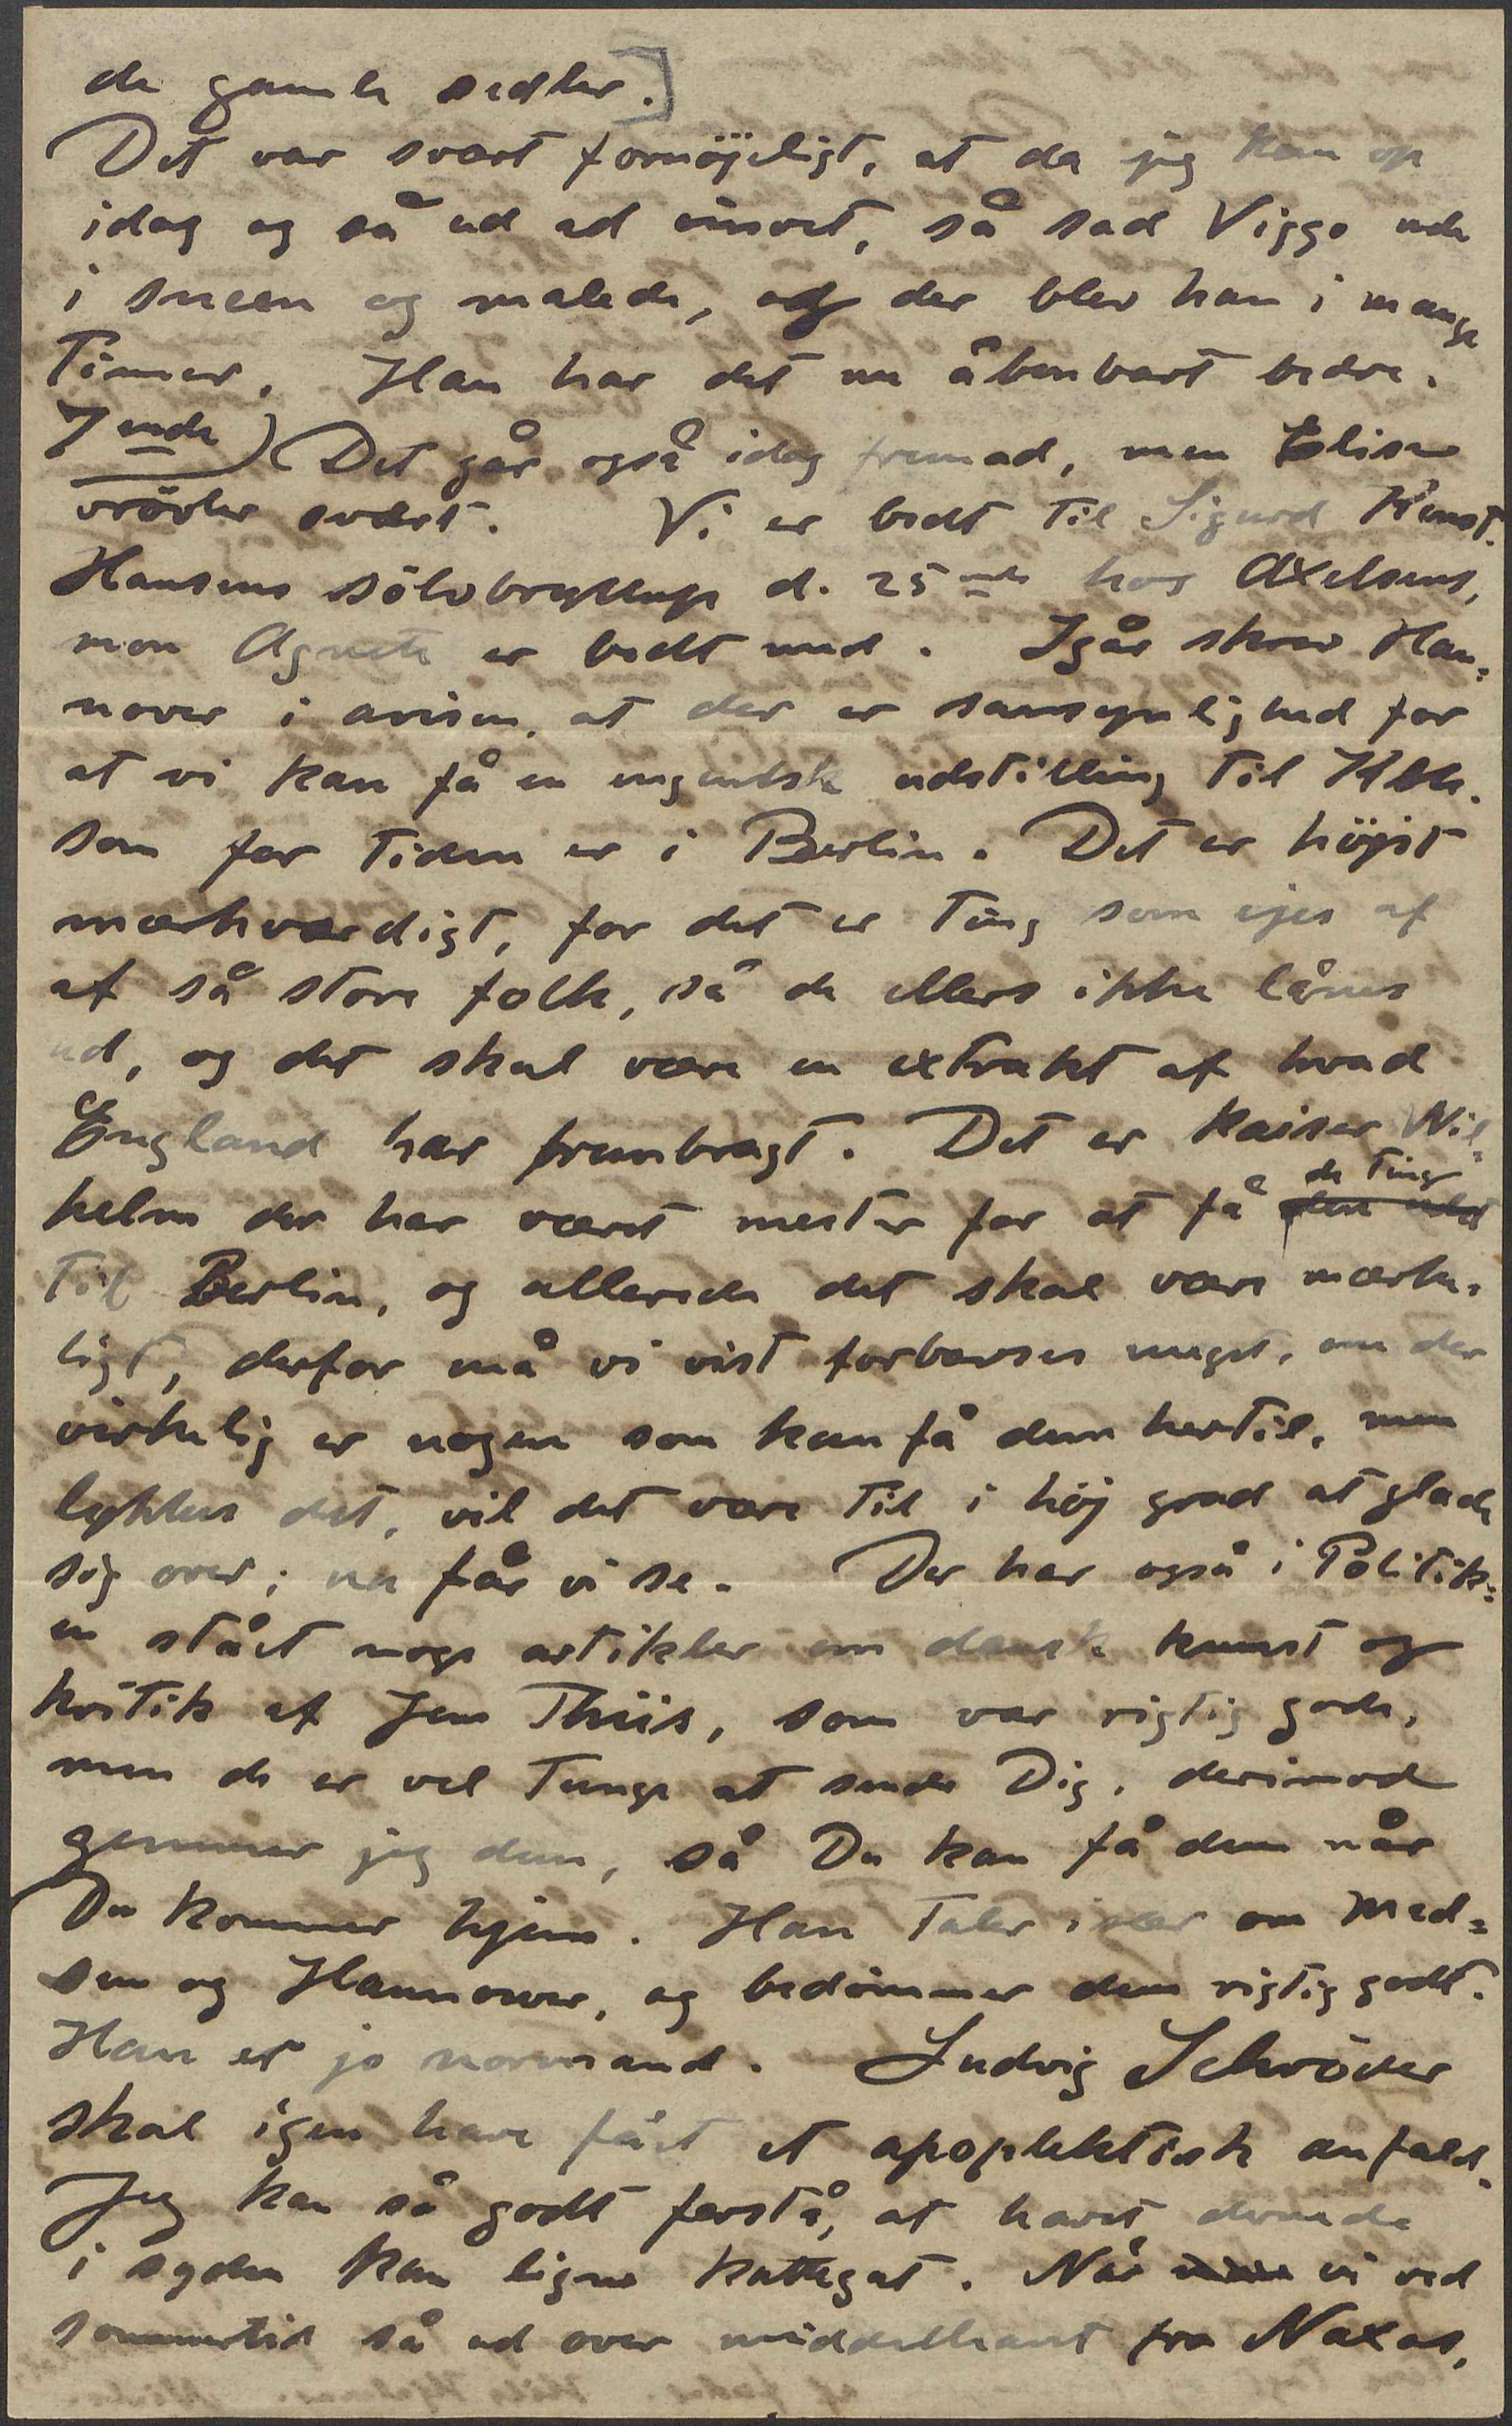 de gamle sedler.]
Det var svært fornöjeligt, at da jeg kom op
idag og så ud ad vinduet, så sad Viggo ude
i sneen og malede, og der blev han i mange
Timer. Han har det nu åbenbart bedre.
7ende) Det går også idag fremad, men Elise
vrövler svært. Vi er bedt til Sigurd Kunst.
Hansens sölvbryllup d. 25nde hos Axelsens,
mon Agnete er bedt med. Igår skrev Han=
nover i avisen, at der er sansynlighed for
at vi kan få en engelsk udstilling til Kbh.
som for Tiden er i Berlin. Det er höjst
mærkværdigt, for det er Ting som ejes af
af så store folk, så de ellers ikke lånes
ud, og det skal være en extrakt af hvad
England har frembragt. Det er Kaiser Wil=
helm der har været mester for at få de Ting
til Berlin, og allerede det skal være mærke=
ligt, derfor må vi vist forbavses meget, om der
virkelig er nogen som kan få dem hertil, men
lykkes det, vil det være til i höj grad at glæde
sig over; nu får vi se. Der har også i Politik=
en stået nogle artikler om dansk kunst og
kritik af Jens Thiis, som var rigtig gode,
men de er vel Tunge at sende Dig, derimod
gemmer jeg dem, så Du kan få dem når
Du kommer hjem. Han Taler især om Mad=
sen og Hannover, og bedömmer dem rigtig godt.
Han er jo normand. Ludvig Schröder
skal igen have fået et apoplektisk anfald.
Jeg kan så godt forstå, at havet dernede
i syden kan ligne Kattegat. Når vi ved
sommertid så ud over middelhavet fra Naxos,